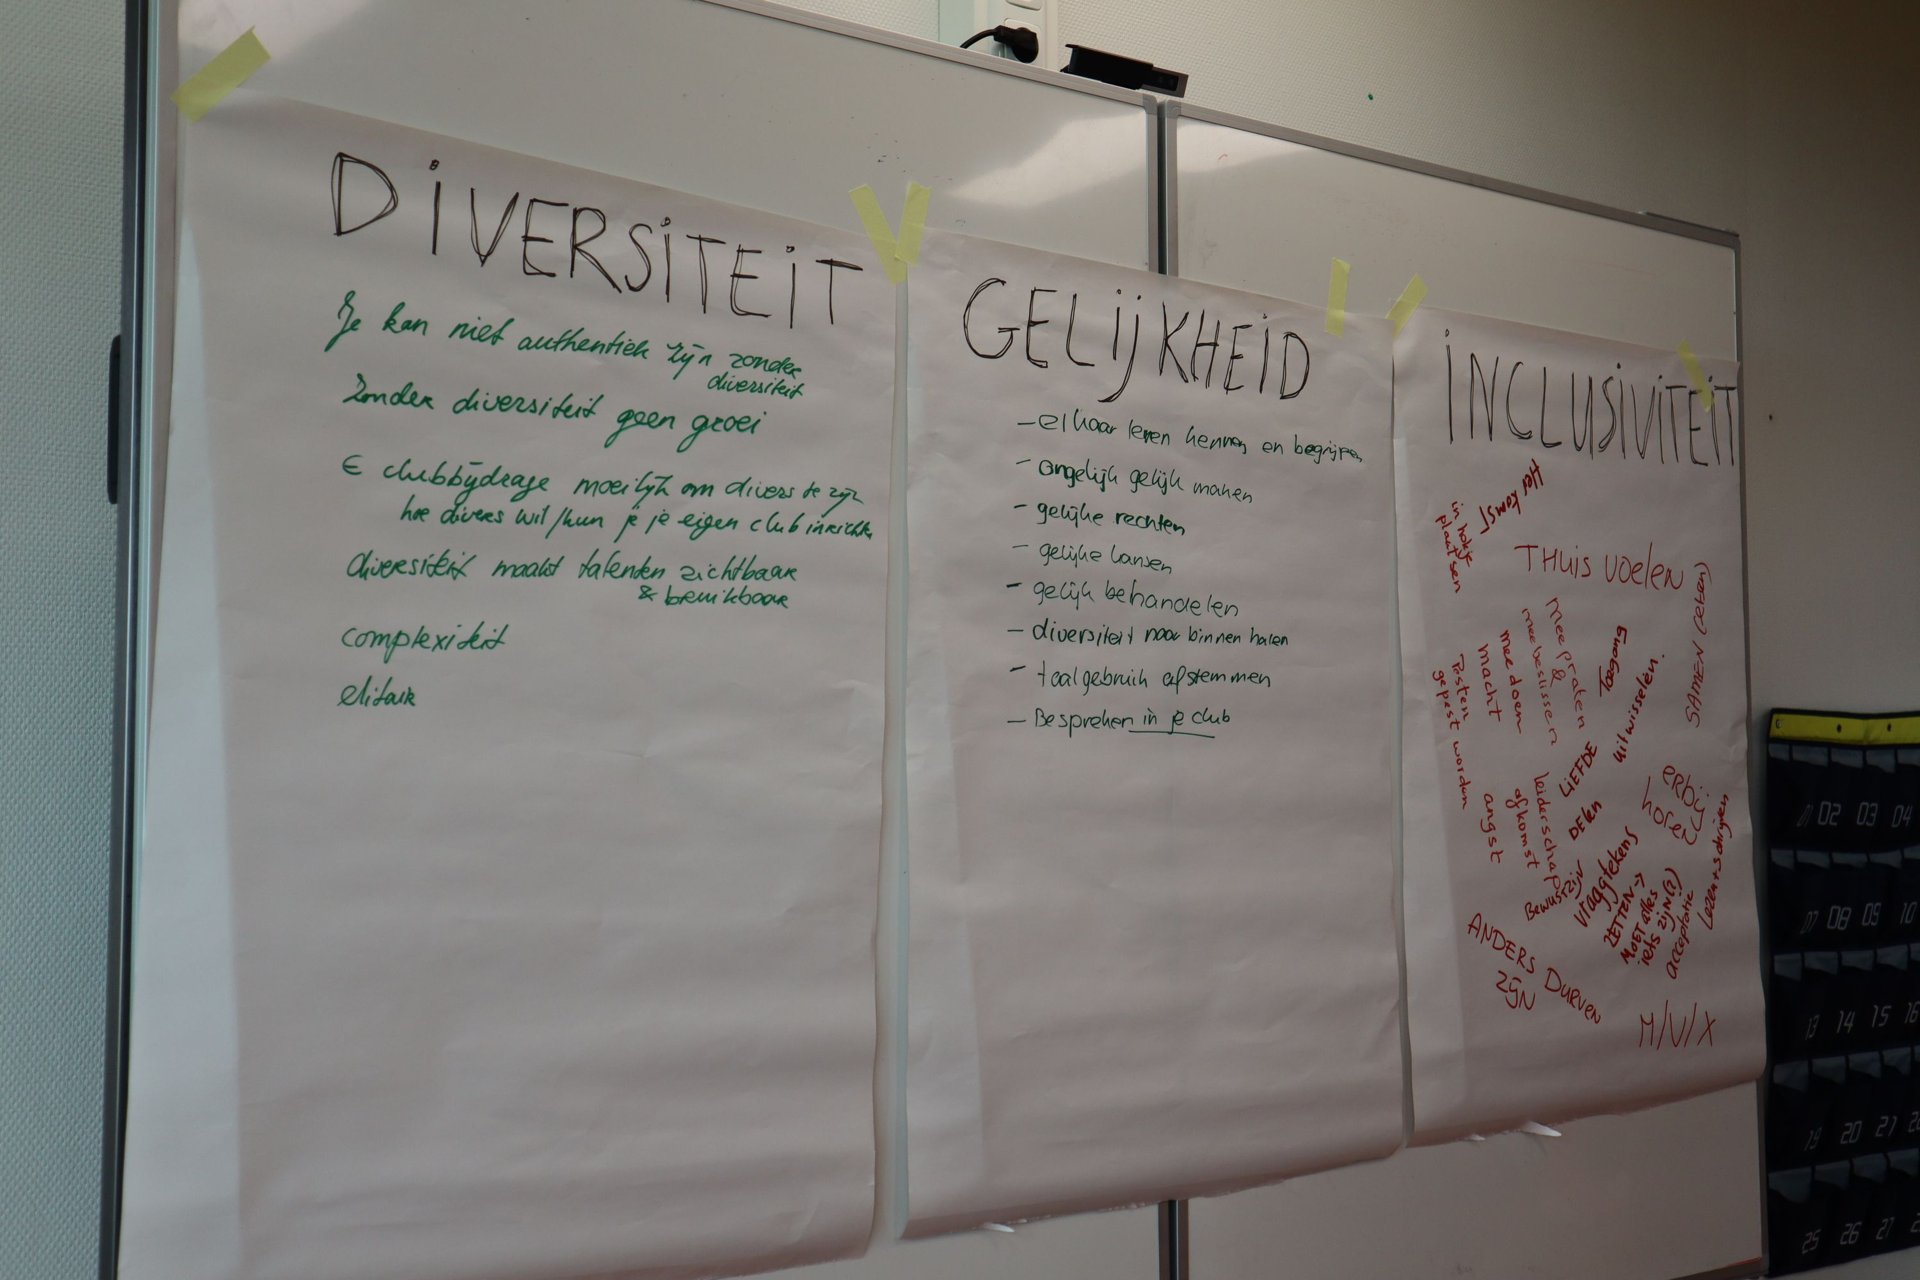 DIVERSITEIT
Je kan niet authentiek zijn zonder
diversiteit
Zonder diversiteit geen groei
€ clubbijdrage moeilijk om divers te zijn
hoe divers wil/kun je je eigen club inrichten
diversiteit maakt talenten zichtbaar
& bruikbaar
complexiteit
elitair
GELIJKHEID
- elkaar leren kennen en begrijpen
- ongelijk gelijk maken
- gelijke rechten
- gelijke kansen
- gelijk behandelen
- diversiteit naar binnen halen
- taalgebruik afstemmen
- Bespreken in je club
INCLUSIVITEIT
Herkomst
in hokje
plaatsen
THUIS VOELEN
SAMEN (eten)
mee praten
&
mee beslissen
mee doen
macht
Pesten
gepest worden
Toegang
uitwisselen.
LIEFDE
DELEN
leiderschap
afkomst
angst
erbij
horen
Lezen + schrijven
Bewust zijn
vraagtekens
ZETTEN →
MOET alles
iets zijn(?)
acceptatie
ANDERS
ZIJN
DURVEN
M/V/X
02 03 04
07 08 09 10
13 14 15 16
19 20 21
25 26 27